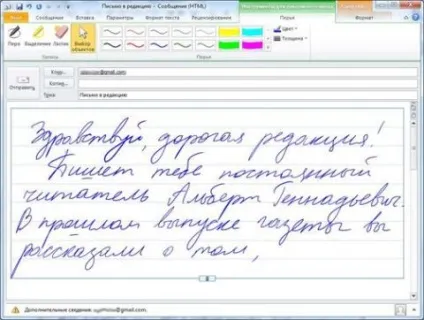 Письмо в редакцию - Сообщение (HTML)
Файл Сообщение Вставка Параметры Формат текста Рецензирование Перья Формат
Перо Выделение Ластик Выбор объектов
Цвет
Толщина
Перья
Отправить
Кому...
Копия...
Тема: Письмо в редакцию
Здравствуй, дорогая редакция!
Пишет тебе постоянный
читатель Альберт Геннадьевич.
В прошлом выпуске газеты вы
рассказали о том,
Дополнительные сведения: